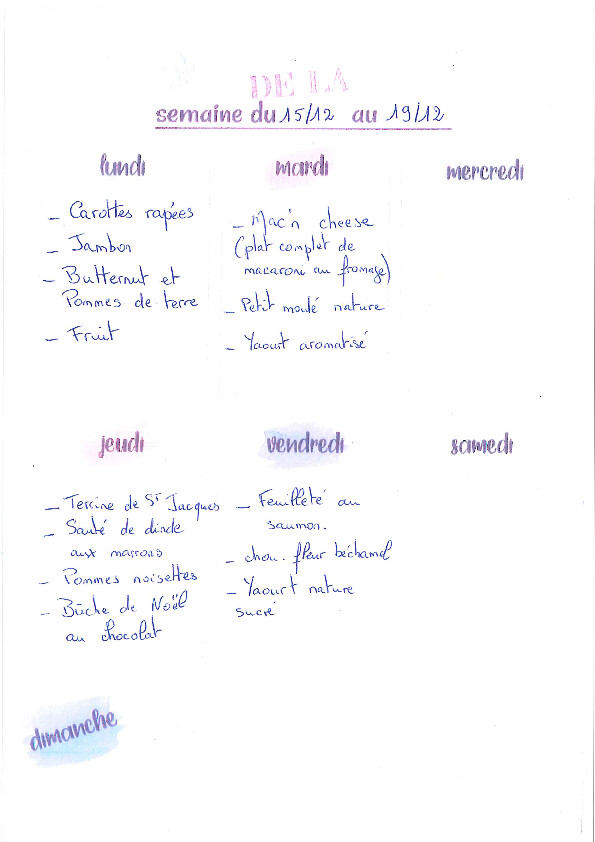 DE LA
semaine du 15/12 au 19/12
lundi
- Carottes rapées
- Jambon
- Butternut et
Pommes de terre
- Fruit
mardi
- Mac'n cheese
(plat complet de
macaroni au fromage)
- Petit moulé nature
- Yaourt aromatisé
mercredi
jeudi
- Terrine de St Jacques
- Sauté de dinde
aux marrons
- Pommes noisettes
- Bûche de Noël
au chocolat
vendredi
- Feuilleté au
saumon.
- chou-fleur béchamel
- Yaourt nature
sucré
samedi
dimanche